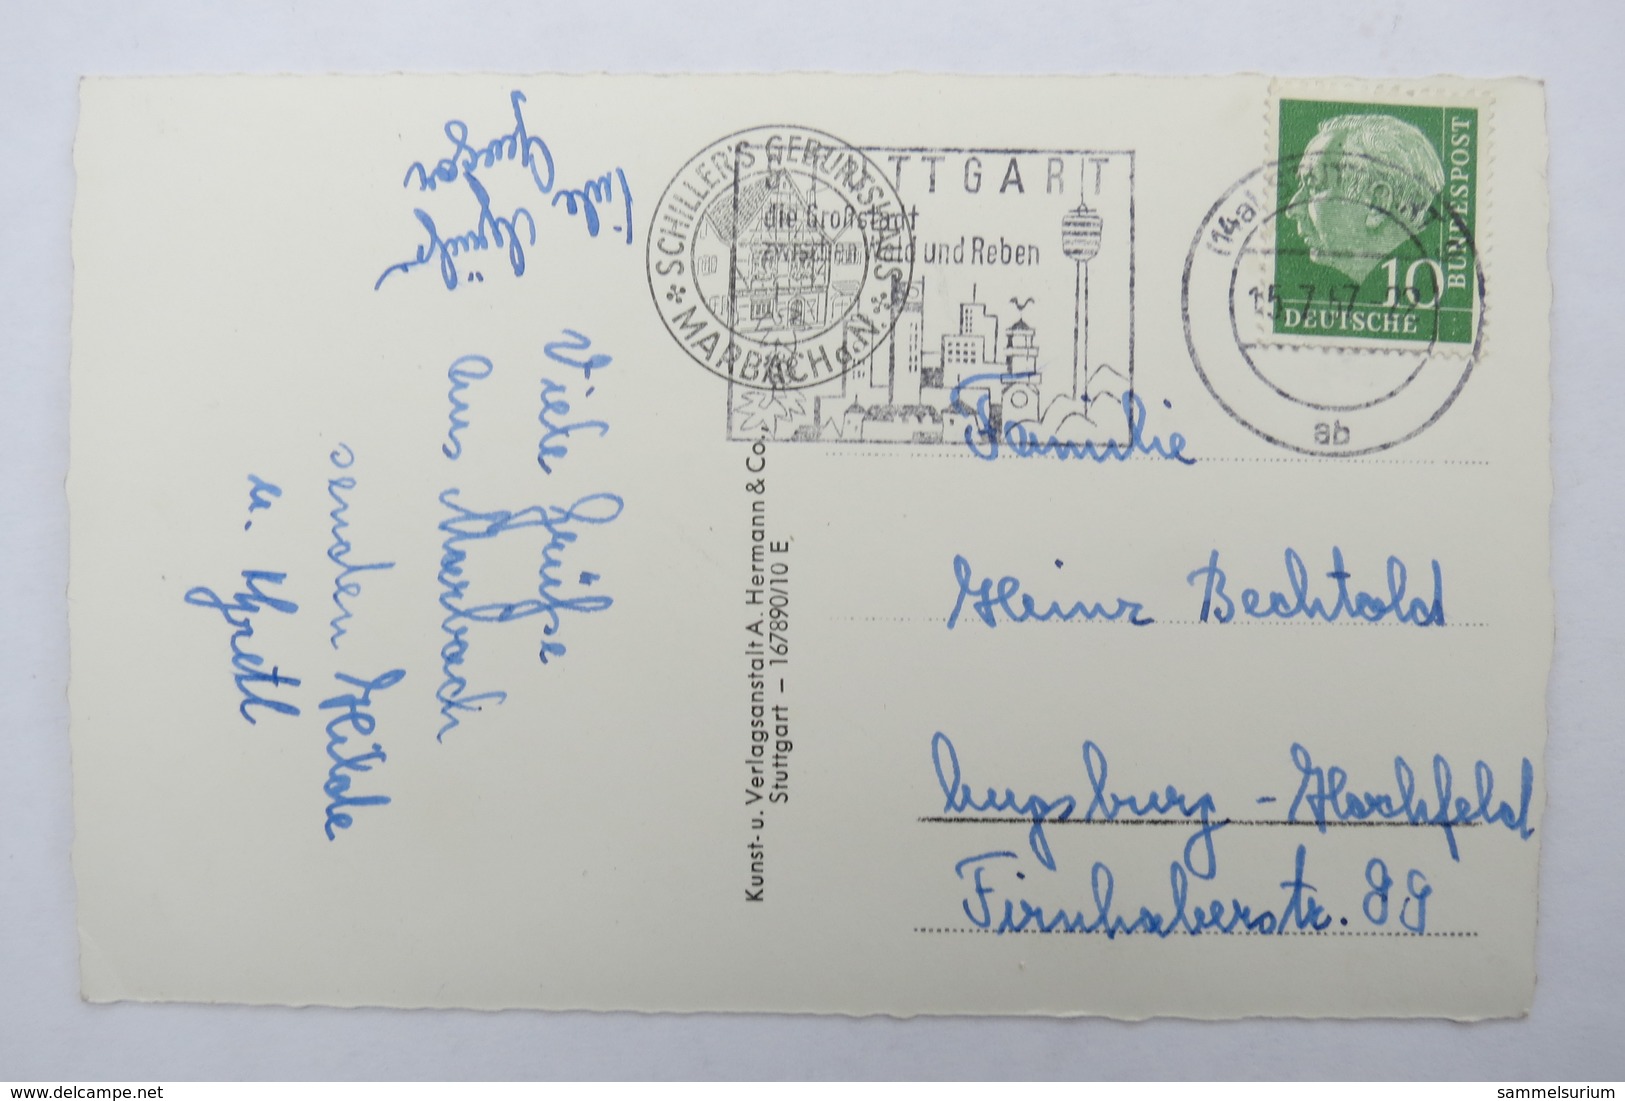 Viele Grüße
aus Marbach
senden Hilde
u. Gretl
Viele
Grüße
SCHILLER'S GEBURTSHAUS
MARBACH a.N.
STUTTGART
die Großstadt
zwischen Wald und Reben
(14a) STUTTGART
15.7.57
ab
10
DEUTSCHE
BUNDESPOST
Kunst- u. Verlagsanstalt A. Hermann & Co.,
Stuttgart – 167890/10 E
Familie
Heinz Bechtold
Augsburg - Hochfeld
Firnhaberstr. 99
delcampe.net
sammelsurium